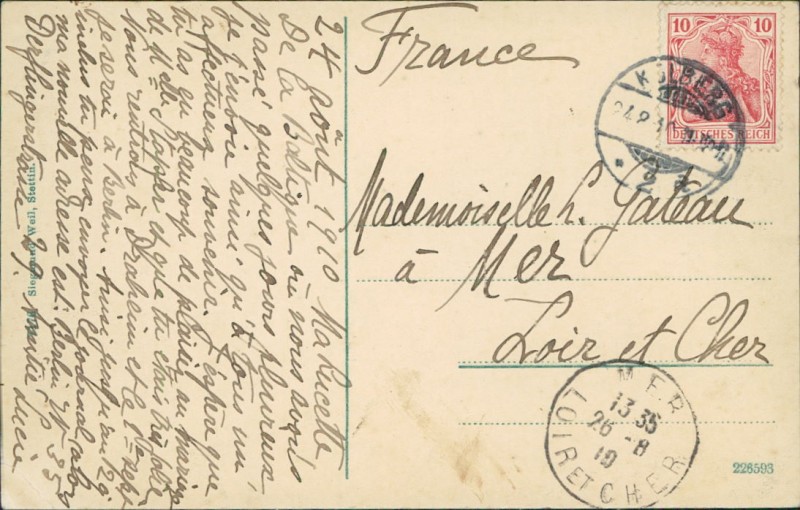 24 août 1910 Ma Lucette
De la Baltique où nous avons
passé quelques jours pluvieux
je t'envoie ainsi qu'à tous un
affectueux souvenir. J'espère que
tu as eu beaucoup de plaisir au mariage
de Mlle et que tu étais très jolie
nous rentrons à et le 1er sept
je serai à Berlin. Ainsi jusqu'au 29
inclus tu peux envoyer le journal alors
ma nouvelle adresse est: Berlin W 35
Derfflingerstrasse 29. Amitiés Lucie
Weil, Stettin.
France
10 10
DEUTSCHES REICH
KOLBERG
2
Mademoiselle L. Gateau
à Mer
Loir et Cher
MER
13 35
26 - 8
10
LOIR ET CHER
226593